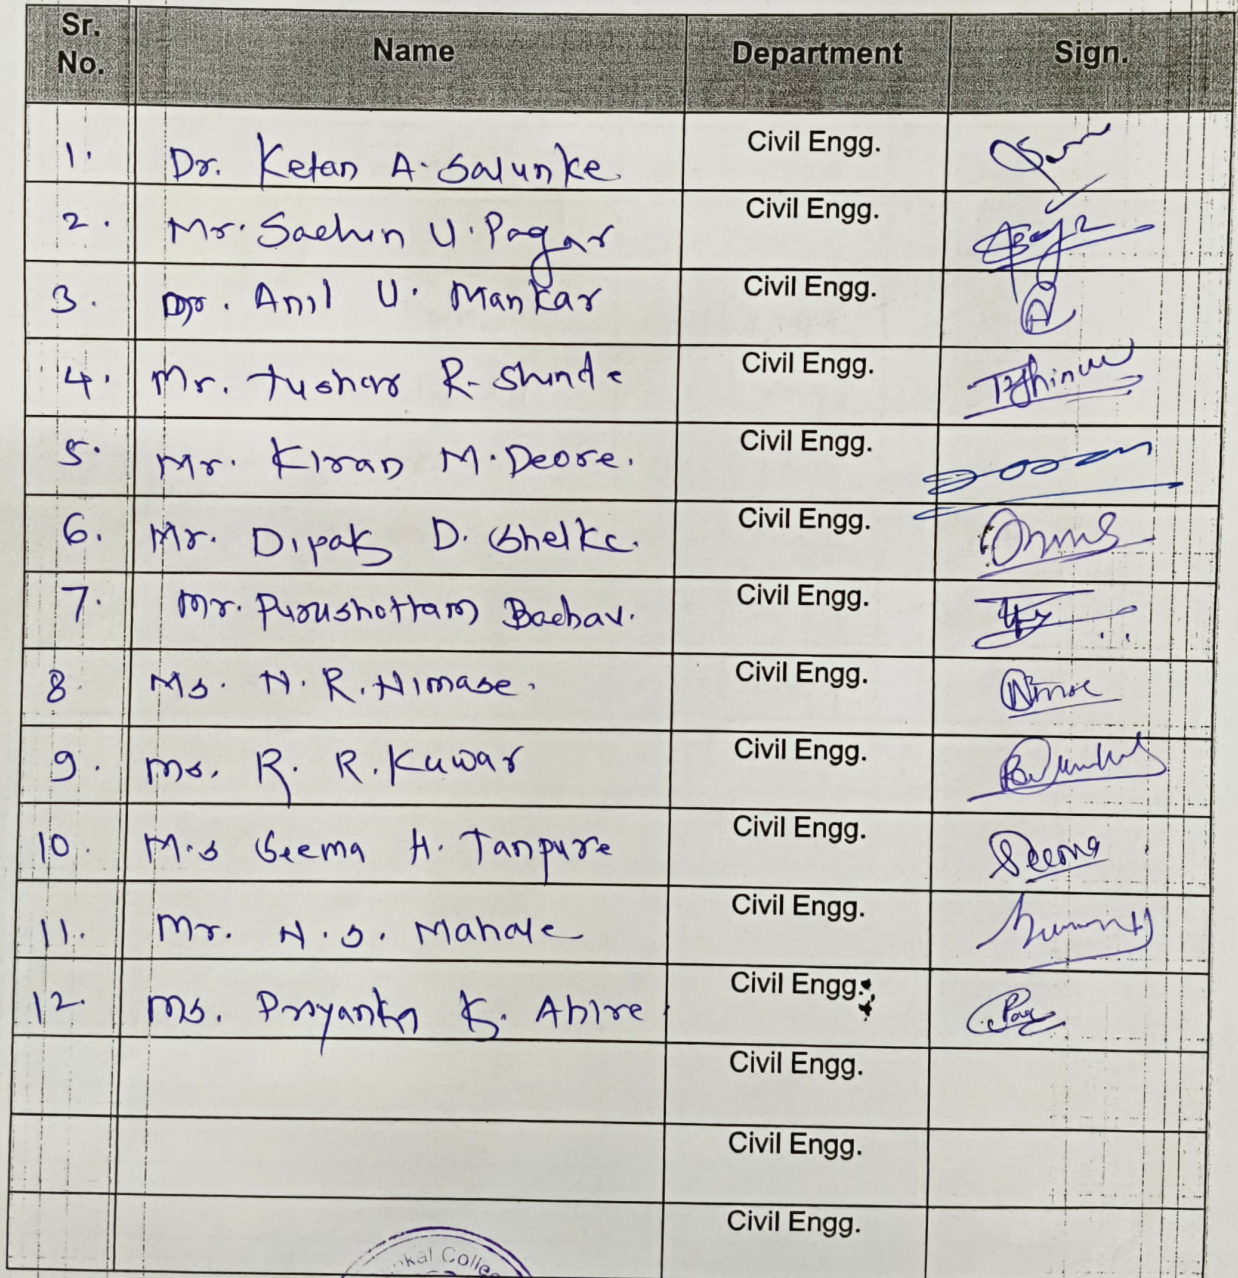 Sr. No. Name Department Sign.
1. Dr. Ketan A. Salunke Civil Engg.
2. Mr. Sachin U. Pagar Civil Engg.
3. Dr. Anil U. Mankar Civil Engg.
4. Mr. Tushar R. Shinde Civil Engg.
5. Mr. Kiran M. Deore. Civil Engg.
6. Mr. Dipak D. Shelke. Civil Engg.
7. Mr. Purushottam Bachav. Civil Engg.
8 Ms. N. R. Nimase. Civil Engg. Nimse
9. Ms. R. R. Kuwar Civil Engg.
10. M.s Seema H. Tanpure Civil Engg. Seema
11. Mr. N. S. Mahale Civil Engg.
12. Ms. Priyanka K. Ahire Civil Engg.
Civil Engg.
Civil Engg.
Civil Engg.